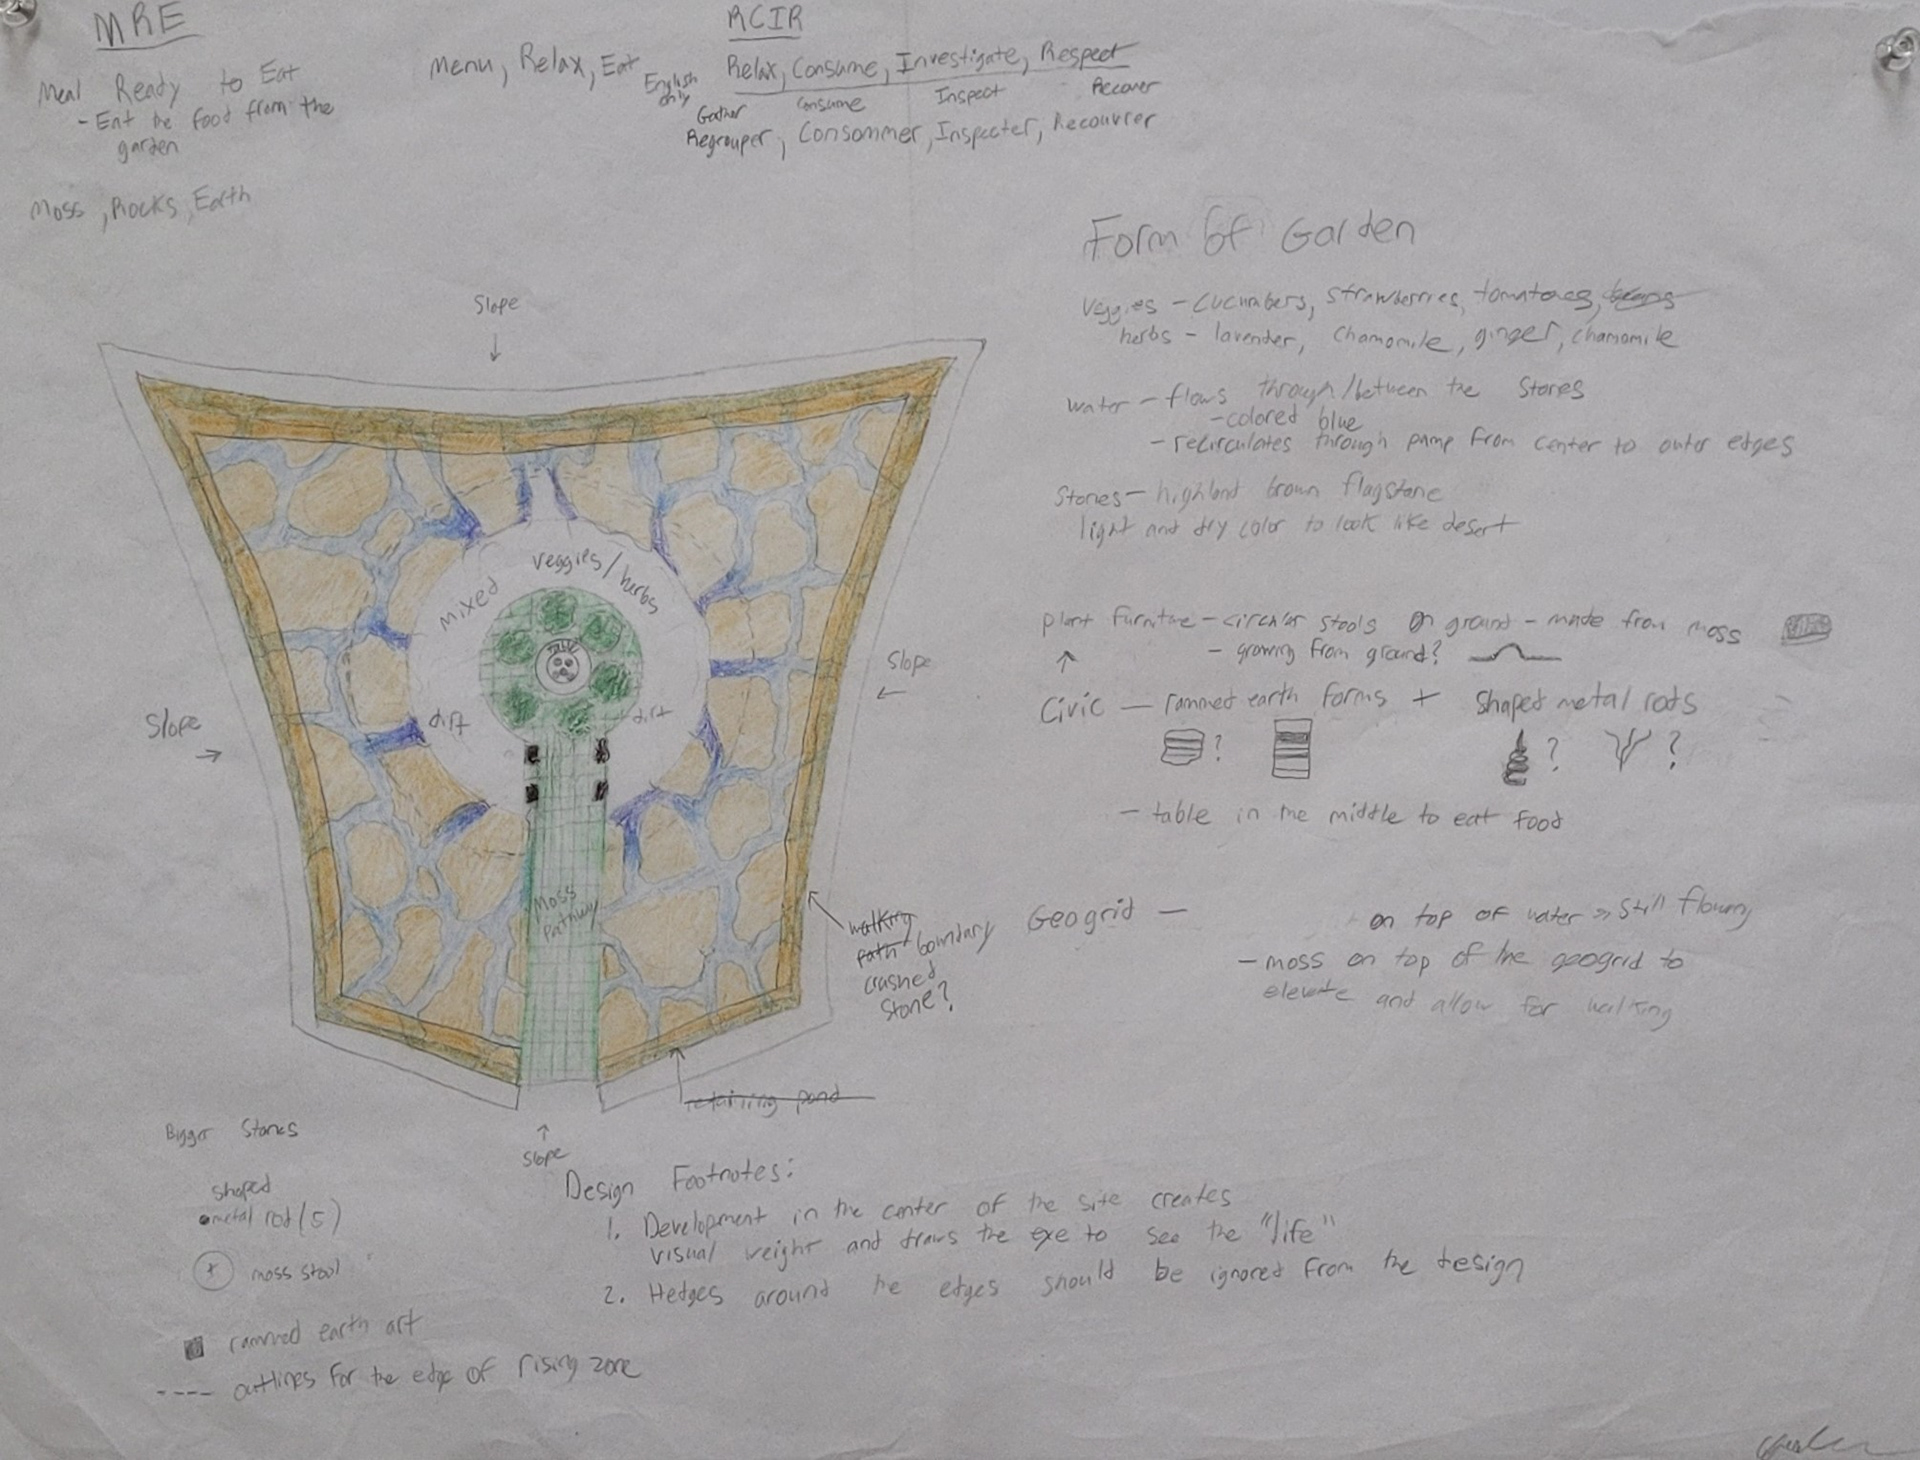 MRE
Meal Ready to Eat
- Eat the food from the
garden
Moss, Rocks, Earth
Menu, Relax, Eat
RCIR
English only
Relax, Consume, Investigate, Respect
Gather Consume Inspect Recover
Regrouper, Consommer, Inspecter, Recouvrer
Form of Garden
Veggies - cucumbers, strawberries, tomatoes, beans
herbs - lavender, chamomile, ginger, chamomile
water - flows through/between the stones
- colored blue
- recirculates through pump from center to outer edges
Stones - highland brown flagstone
light and dry color to look like desert
plant furniture - circular stools on ground - made from moss
- growing from ground?
Civic - rammed earth forms + shaped metal rods
? ? ?
- table in the middle to eat food
Geogrid - on top of water » still flowing
- moss on top of the geogrid to
elevate and allow for walking
Slope
Slope
Slope
Slope
mixed veggies/herbs
table
dirt
dirt
Moss
Pathway
walking
path boundary
crushed
stone?
retaining pond
Bigger Stones
shaped
metal rod (5)
moss stool
rammed earth art
---- outlines for the edge of rising zone
Design Footnotes:
1. Development in the center of the site creates
visual weight and draws the eye to see the "life"
2. Hedges around the edges should be ignored from the design